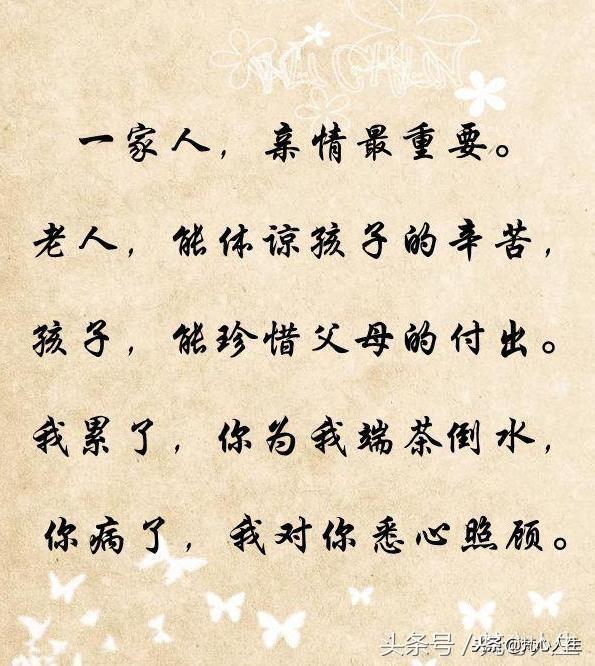 一家人，亲情最重要。
老人，能体谅孩子的辛苦，
孩子，能珍惜父母的付出。
我累了，你为我端茶倒水，
你病了，我对你悉心照顾。
头条 @梵心人生
头条号 /